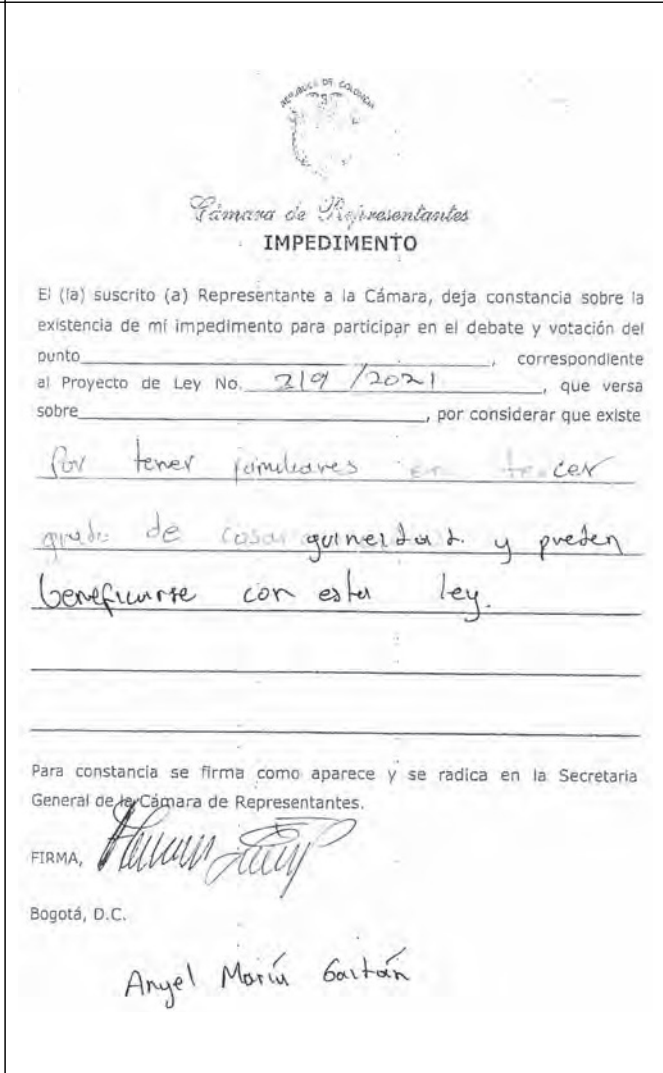 REPUBLICA DE COLOMBIA
Cámara de Representantes
IMPEDIMENTO
El (la) suscrito (a) Representante a la Cámara, deja constancia sobre la
existencia de mi impedimento para participar en el debate y votación del
punto____________________, correspondiente
al Proyecto de Ley No. 219/2021, que versa
sobre____________________, por considerar que existe
por tener familiares en tercer
grado de cosanguineidad y pueden
beneficiarse con esta ley.
Para constancia se firma como aparece y se radica en la Secretaria
General de la Cámara de Representantes.
FIRMA,
Bogotá, D.C.
Angel María Gaitán